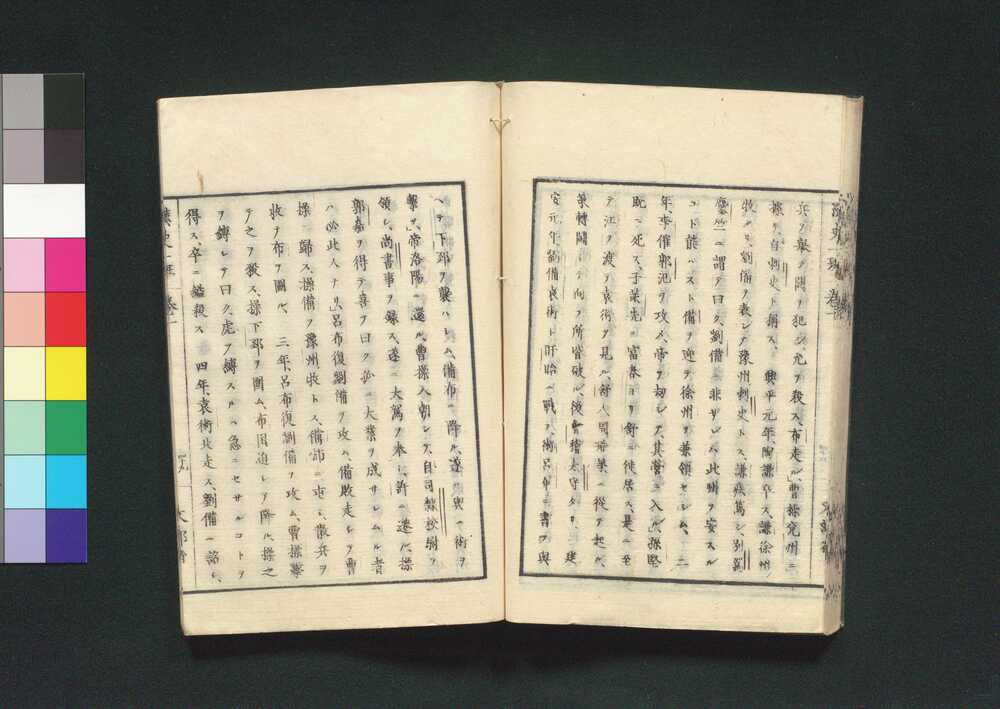 兵ヲ擧ケ關ヲ犯シ、允ヲ殺ス、布走ル、曹操兗州ニ
據リ、自刺史ト稱ス、興平元年、陶謙卒ス、謙徐州ノ
牧タリ、劉備ヲ表シテ豫州刺史トス、謙疾篤シ、別駕
麋竺ニ謂テ曰ク、劉備ニ非サレハ此州ヲ安スル
コト能ハスト、備ヲ迎テ徐州ヲ兼領セシム、二
年、李傕郭汜ヲ攻ム、帝ヲ劫シテ、其營ニ入ル、孫堅
既ニ死ス、子策先ニ富春ヨリ舒ニ徙居ス、是ニ至
テ江ヲ渡テ袁術ヲ見ル、舒人周瑜策ニ從テ起ル、
策轉鬭シテ向フ所皆破ル、後會稽太守タリ、建
安元年、劉備袁術ト盱眙ニ戰フ、術呂布ニ書ヲ與
ヘテ下邳ヲ襲ハシム、備布ニ降ル、遂ニ與ニ術ヲ
擊ツ、帝洛陽ニ還ル、曹操入朝シテ、自司隸校尉ヲ
領シ、尚書事ヲ錄ス、遂ニ大駕ヲ奉シ、許ニ遷ル、操
郭嘉ヲ得テ喜テ曰ク、孤ニ大業ヲ成サシムル者
ハ必此人ナリ、呂布復劉備ヲ攻ム、備敗走シテ曹
操ニ歸ス、操備ヲ豫州牧トス、備沛ニ屯シ、散兵ヲ
收テ布ヲ圖ル、三年、呂布復劉備ヲ攻ム、曹操擊
テ之ヲ敗ス、操下邳ヲ圍ム、布困迫シテ降ル、操之
ヲ縛シテ曰ク、虎ヲ縛スルハ急ニセサルコトヲ
得ス、卒ニ縊殺ス、四年、袁術北走ス、劉備ニ詔シ、
漢史一班 卷二